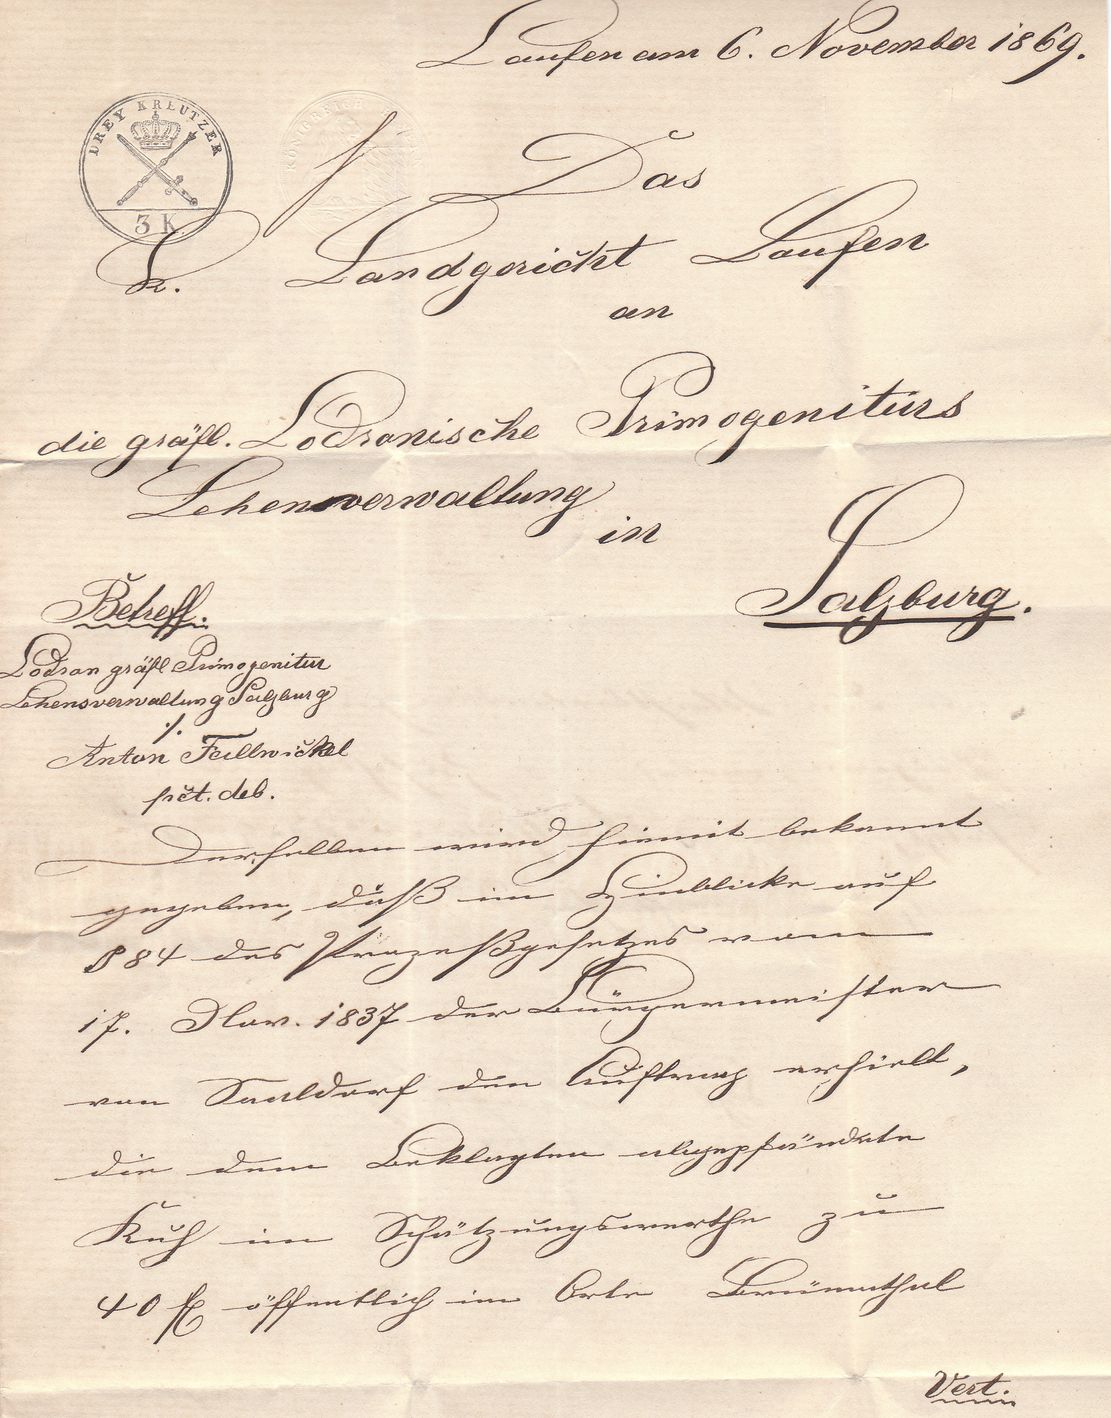 Laufen am 6. November 1869.
DREY KREUTZER
3 K.
KÖNIGREICH
Das
K. Landgericht Laufen
an
die gräfl. Lodronische Primogeniturs
Lehensverwaltung
in
Salzburg.
Betreff.
Lodron gräfl Primogenitur
Lehensverwaltung Salzburg
./.
Anton
pct. deb.
Derselben wird hiemit bekannt
gegeben, daß im Hinblicke auf
§ 84 des Prozeßgesetzes vom
17. Nov. 1837 der Bürgermeister
von Saaldorf den Auftrag erhielt,
die dem Beklagten abgepfändete
Kuh im Schätzungswerthe zu
40 fl öffentlich im Orte Brünnthal
Vert.